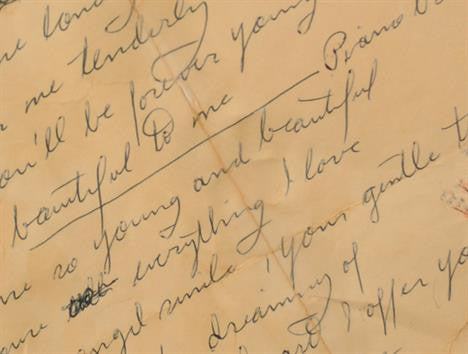 me tenderly
you'll be forever young
beautiful to me Piano
so young and beautiful
everything I love
angel smile, your gentle
dreaming of
I offer you